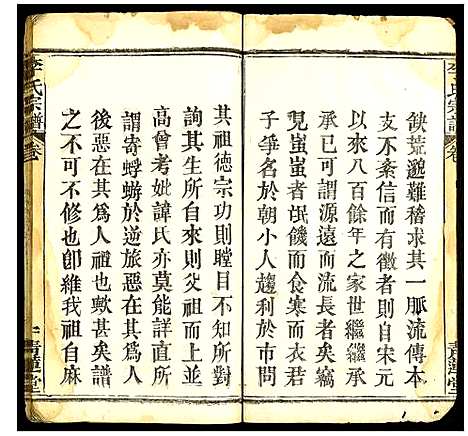 缺荒邈難稽求其一脈流傳本
支不紊信而有徵者則自宋元
以來八百餘年之家世繼繼承
承已可謂源遠而流長者矣竊
見蚩蚩者氓饑而食寒而衣君
子爭名於朝小人趨利於市問
其祖德宗功則瞠目不知所對
詢其生所自來則父祖而上
高曾考妣諱氏亦莫能詳直所
謂寄蜉蝣於逆旅惡在其為人
後惡在其為人祖也歟甚矣譜
之不可不修也卽維我祖自麻
李氏宗譜
卷
青蓮堂
李氏宗譜
卷
青蓮堂